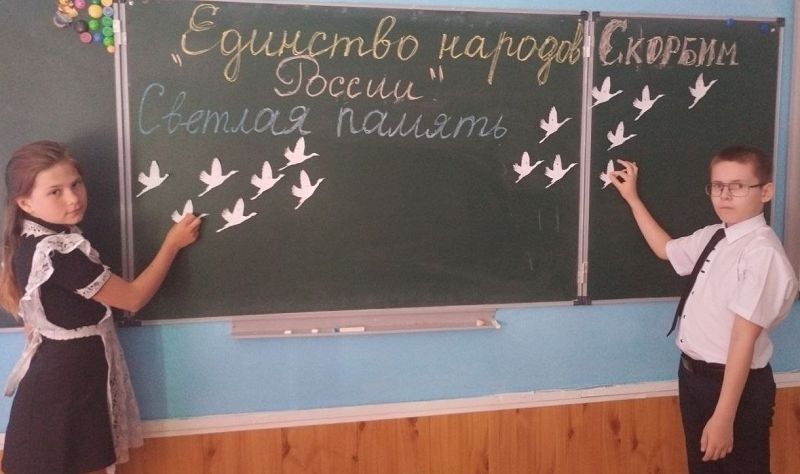 "Единство народов
России"
Светлая память
Скорбим